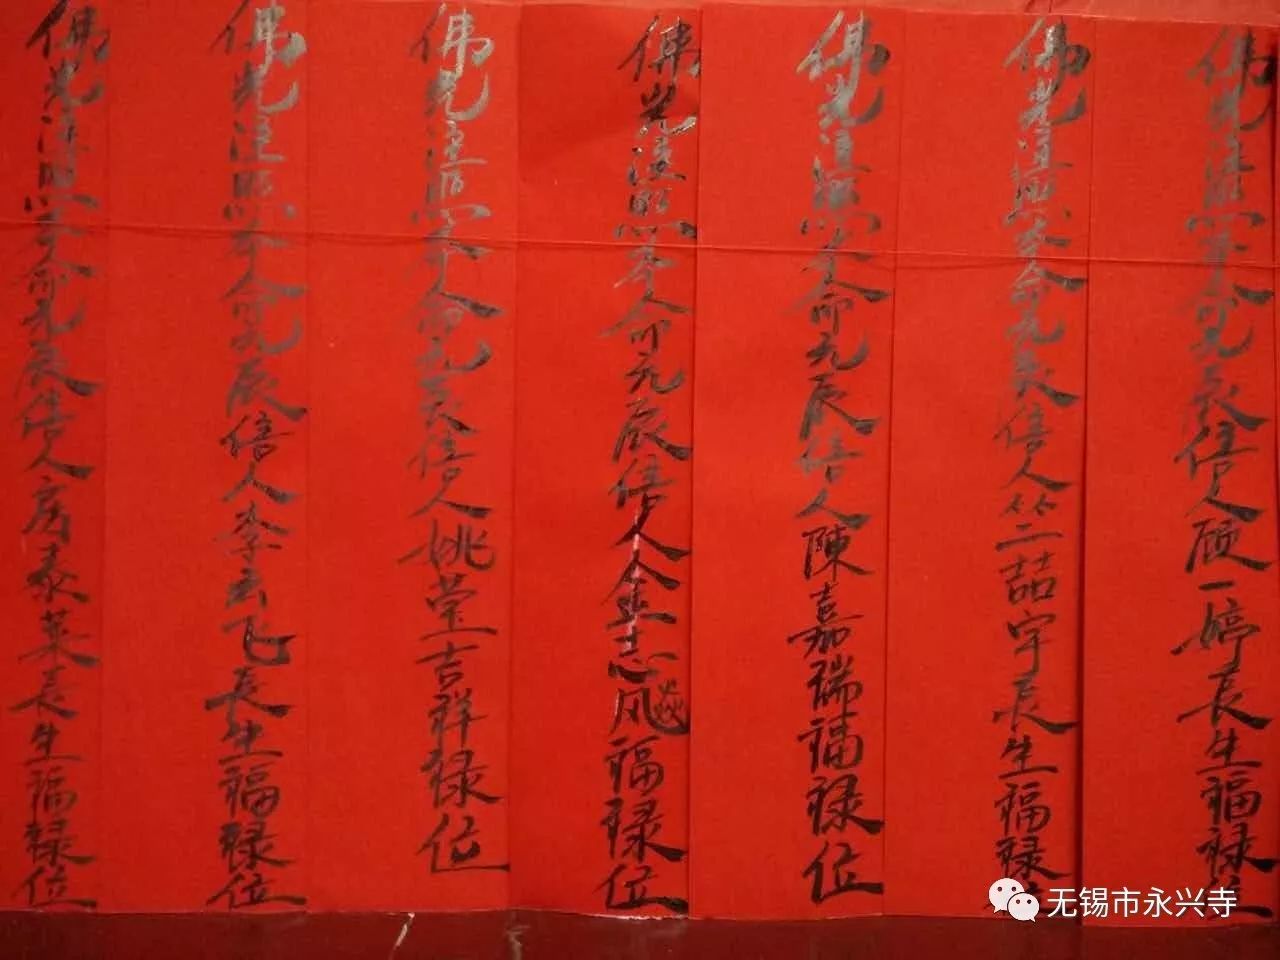 佛光注照本命元辰信人顾一婷長生福禄位
佛光注照本命元辰信人竺喆宇長生福禄
佛光注照本命元辰信人陳嘉瑞福禄位
佛光注照本命元辰信人金志飚福禄位
佛光注照本命元辰信人姚莹吉祥禄位
佛光注照本命元辰信人李云飞長生福禄位
佛光注照本命元辰信人房泰莱長生福禄位
无锡市永兴寺